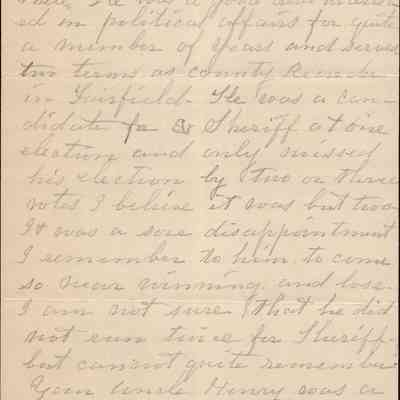 He was a good deal interest-
ed in political affairs for quite
a number of years and served
two terms as county Recorder
in Fairfield. He was a can-
didate for Sheriff at one
election and only missed
his election by two or three
votes I believe it was but two
It was a sore disappointment
I remember to him to come
so near winning and lose.
I am not sure that he did
not run twice for Sheriff-
but cannot quite remember
Your Uncle Henry was a